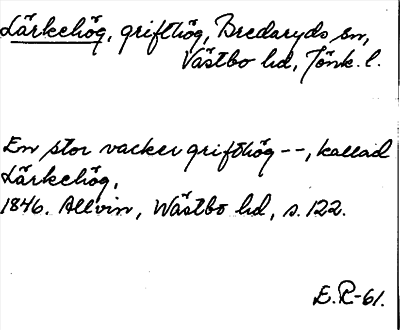 Lärkehög, grifthög, Bredaryds sn,
Västbo hd, Jönk. l.
En stor vacker grifthög --, kallad
Lärkehög,
1846. Allvin, Wästbo hd, s. 122.
E.R-61.